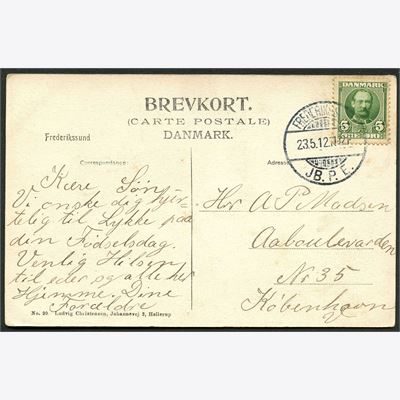 BREVKORT.
(CARTE POSTALE)
DANMARK.
Frederikssund
Correspondance:
Adresse:
DANMARK
5 5
ØRE ØRE
FREDERIKS
23.5.12.
JB.P.E.
Kære Søn
Vi ønske dig hjer-
telig til Lykke paa
den Fødselsdag.
Venlig Hilsen
til eder og alle her
Hjemme, Dine
Forældre
Hr A P Madsen
Aaboulevarden
Nr 35
København
No. 20. Ludvig Christensen, Johannevej 2, Hellerup